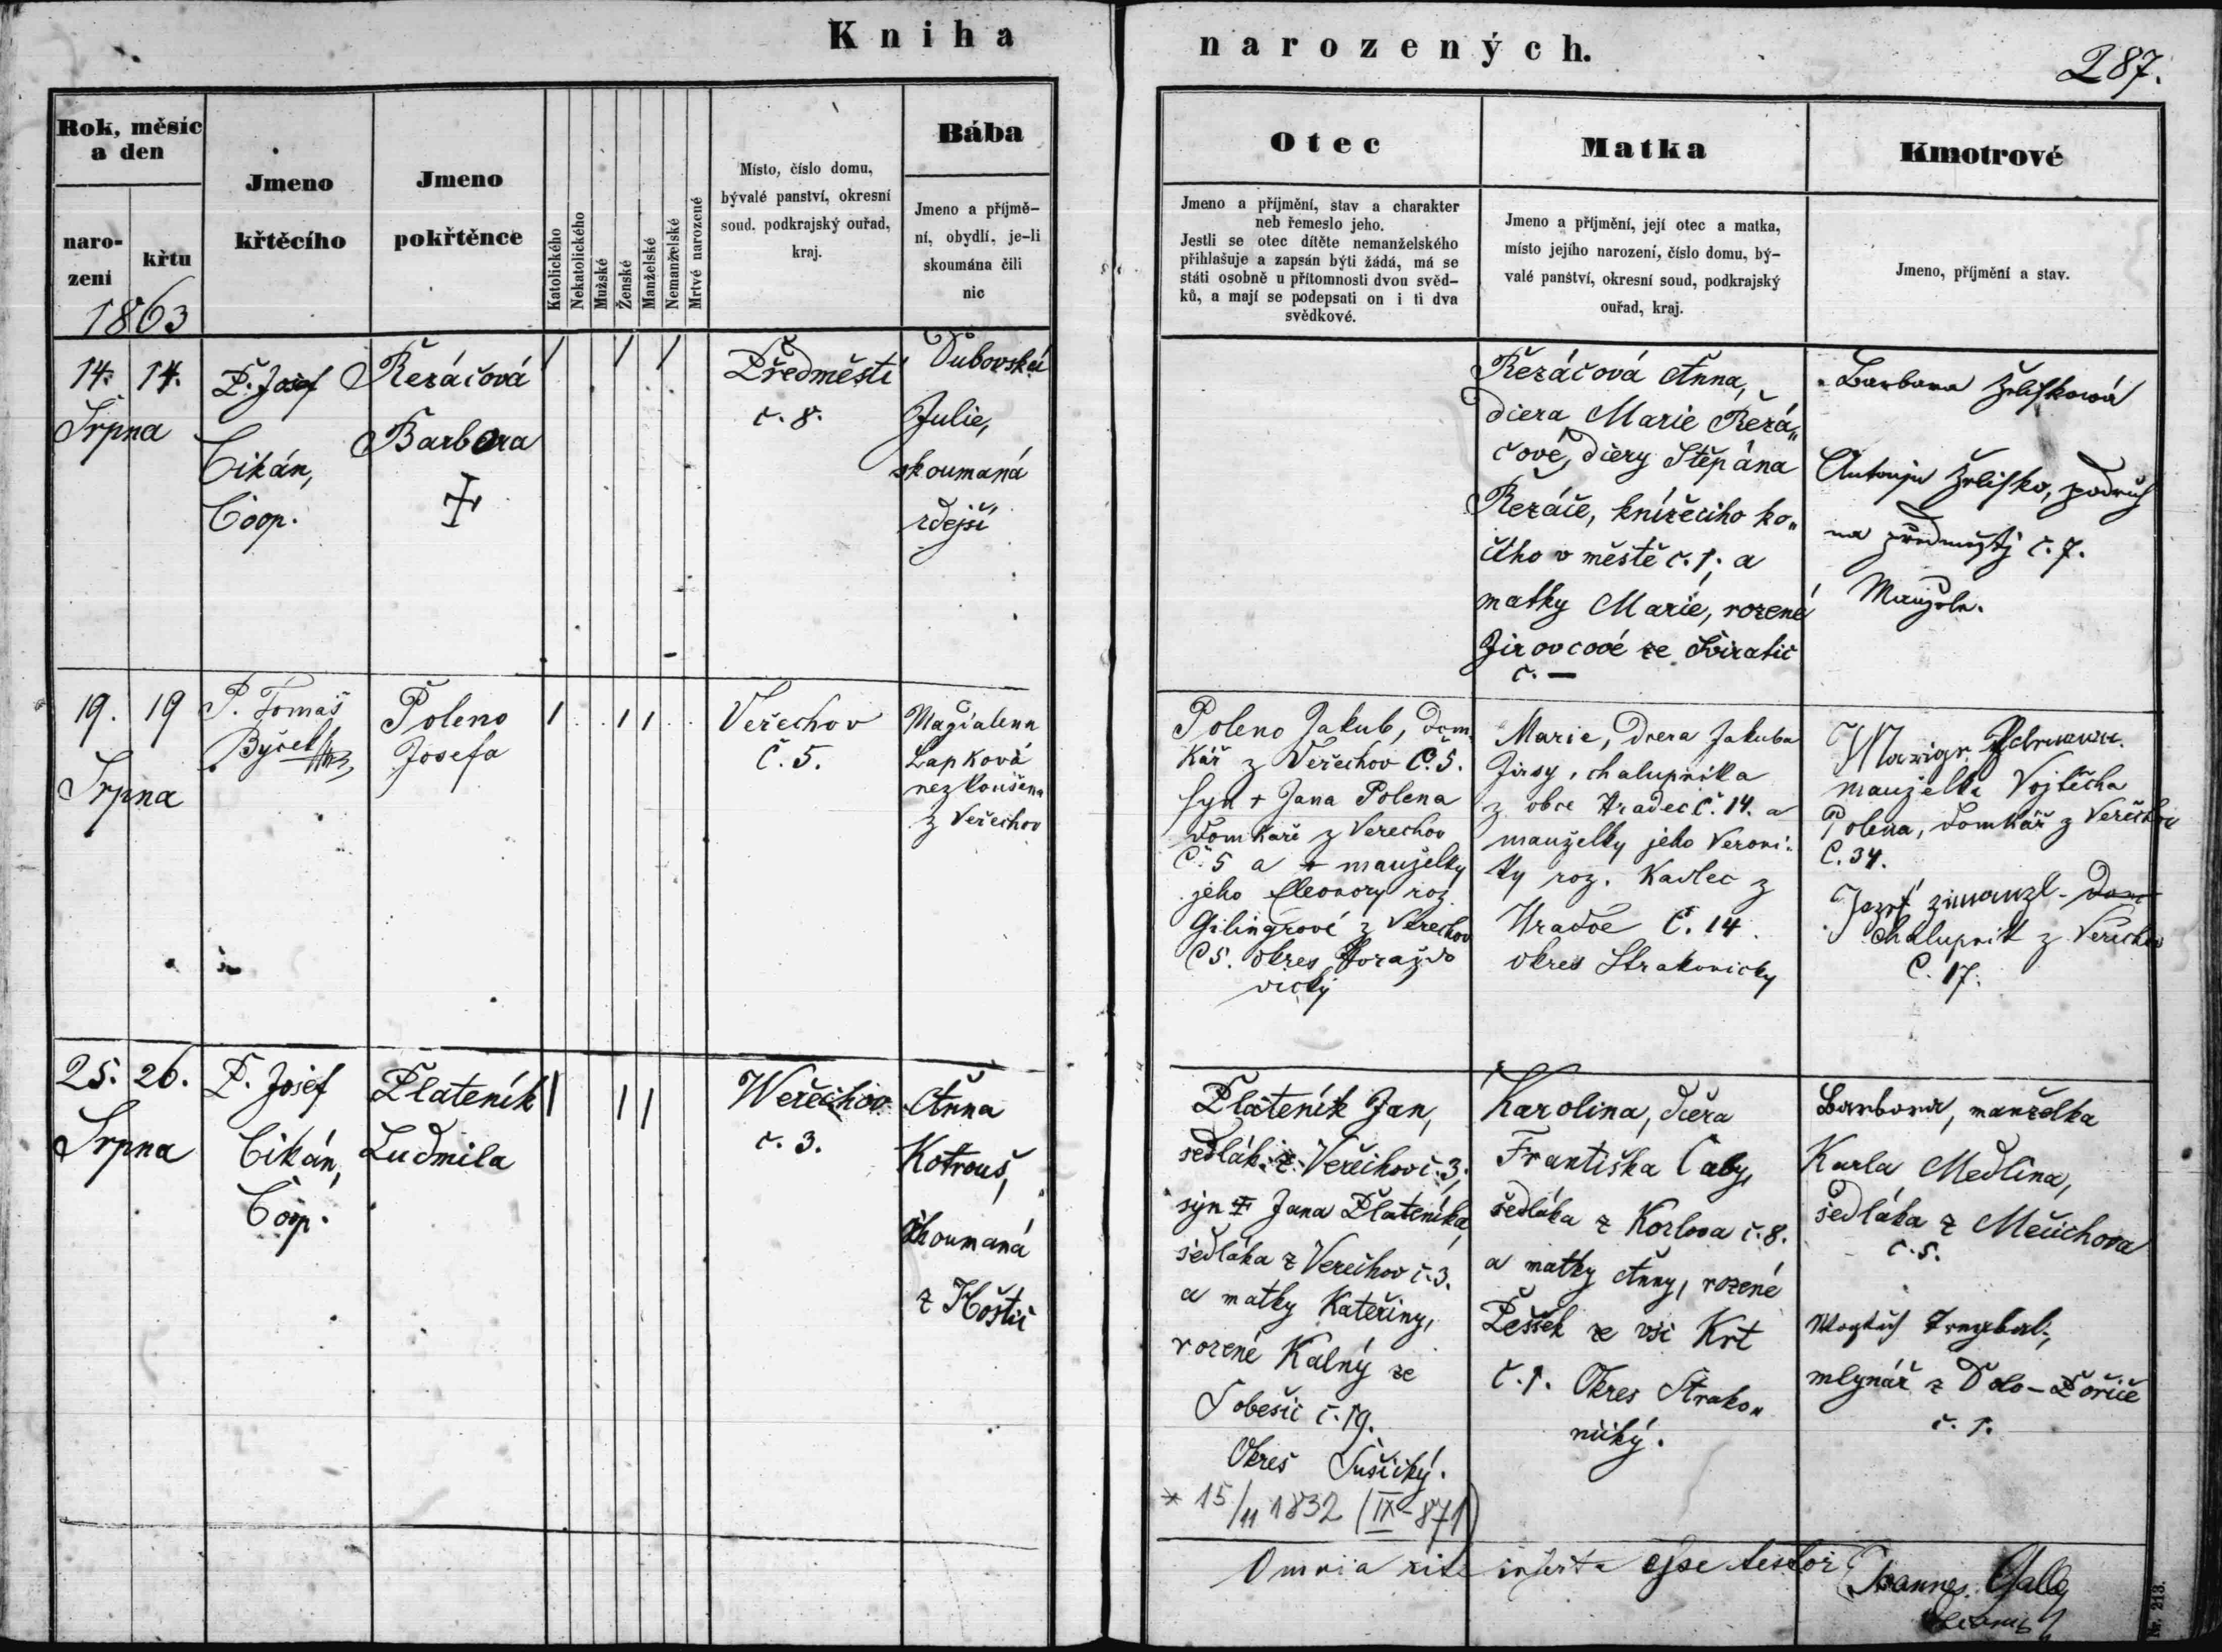 Kniha
narozených.
287.
Rok, měsíc
a den
naro-
zení
křtu
1863
Jmeno
křtěcího
Jmeno
pokřtěnce
Katolického
Nekatolického
Mužské
Ženské
Manželské
Nemanželské
Mrtvé narozené
Místo, číslo domu,
bývalé panství, okresní
soud, podkrajský ouřad,
kraj.
Bába
Jmeno a příjmě-
ní, obydlí, je-li
skoumána čili
nic
Otec
Jmeno a příjmění, stav a charakter
neb řemeslo jeho.
Jestli se otec dítěte nemanželského
přihlašuje a zapsán býti žádá, má se
státi osobně u přítomnosti dvou svěd-
ků, a mají se podepsati on i ti dva
svědkové.
Matka
Jmeno a příjmění, její otec a matka,
místo jejího narození, číslo domu, bý-
valé panství, okresní soud, podkrajský
ouřad, kraj.
Kmotrové
Jmeno, příjmění a stav.
14. 14.
Srpna
P. Josef
Cikán,
Coop.
Řezáčová
Barbora
Předměstí
č. 8.
Dubovská
Julie,
skoumaná
zdejší
Řezáčová Anna,
dcera Marie Řezá„
čové, dcery Štěpána
Řezáče, knížecího ko„
čího v městě č. 1; a
matky Marie, rozené
Jirovcové ze Sviratic
č. —
Barbara
Antonjn
na předměstj č. 7.
19. 19
Srpna
P. Tomáš
Poleno
Josefa
Veřechov
Č. 5.
Magdalena
Lapková
nezkoušena
z Veřechov
Poleno Jakub, dom„
kář z Veřechov Č. 5.
syn + Jana Polena
domkáře z Veřechov
Č. 5 a + manželky
jeho Eleonory roz.
Gilingrové z Veřechov
Č 5. okres Horažďo
vický
Marie, dcera Jakuba
Jirsy, chalupníka
z obce Hradec Č. 14. a
manželky jeho Veroni„
ky roz. Kadlec z
Hradce Č. 14.
okres Strakonický
manželka Vojtěcha
Polena, domkář z Veřechov
Č. 34.
Jozef
chalupník z Veřechov
Č. 17.
25. 26.
Srpna
P. Josef
Cikán,
Coop.
Plateník
Ludmila
Weřechov
č. 3.
Anna
Kotrouš,
skoumaná
z Hoštic
Plateník Jan,
sedlák z Veřechov č. 3,
syn † Jana Plateníka,
sedláka z Veřechov č. 3.
a matky Kateřiny,
rozené Kalný ze
Soběšic č. 19.
Okres Sušický.
* 15/11 1832 (IX-871)
Karolina, dcera
Františka Caby,
sedláka z Kozlova č. 8.
a matky Anny, rozené
Pešek ze vsi Krt
č. 1. Okres Strako„
nický.
Barbora, manželka
Karla Medlína,
sedláka z Mečichova
č. 5.
mlynář z Dolo-Pořiče
č. 1.
Omnia rite inserta esse testor
Joannes
Nr. 213.